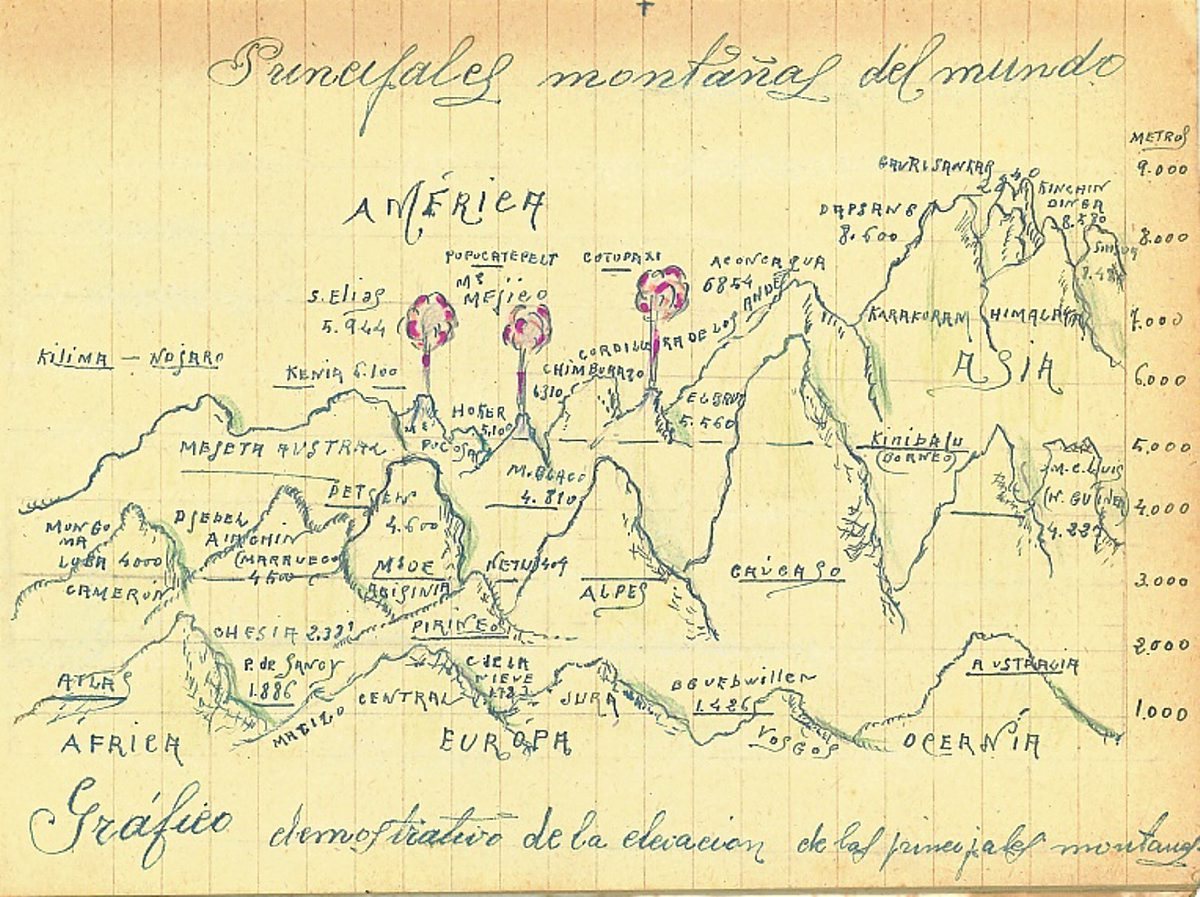 Principales montañas del mundo
METROS
9.000
GAURISANKAR
8.840
KINCHIN
DINGA
8.580
DAPSANG
8.600
8.000
AMÉRICA
POPUCATEPELT
MS
MEJICO
COTOPAXI
ACONCAGUA
6854
S. ELIAS
5.944
CORDILLERA DE LOS ANDES
KARAKORAM
HIMALAYA
7.000
ASIA
KILIMA - NDJARO
KENIA 6.100
CHIMBORAZO
6310
6.000
HOKER
5.100
ELBRUS
5.560
MESETA AUSTRAL
KINIBALU
(BORNEO)
5.000
M. BLACO
4.810
M. C. LUIS
(N. GUINEA)
4.227
DETSEN
4.600
4.000
MUNGO
MA
LOBA 4000
CAMERÚN
DJEBEL
AIACHIN
(MARRUECO
4500
MS DE
ABISINIA
ALPES
CÁUCASO
3.000
PIRINEOS
CHESIA 2.331
2.000
ATLAS
P. de SANCY
1.886
MACIZO CENTRAL
C de LA
NIEVE
JURA
GGUEBWILLEN
1.426
AUSTRALIA
VOSGOS
1.000
AFRICA
EURÓPA
OCEANÍA
Gráfico demostrativo de la elevacion de las principales montañas